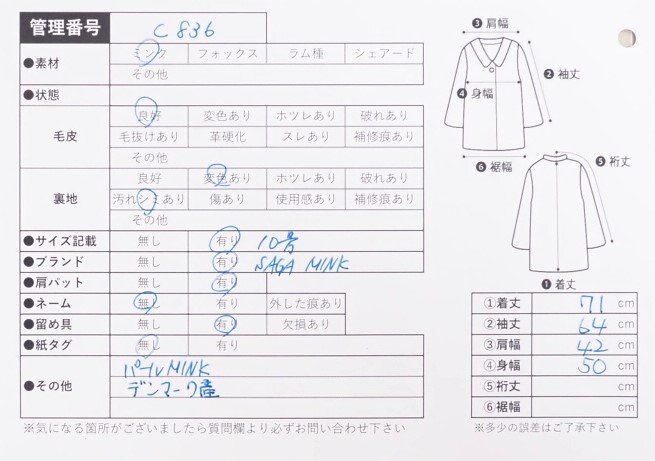 管理番号 C836
●素材 ミンク フォックス ラム種 シェアード
その他
●状態
毛皮 良好 変色あり ホツレあり 破れあり
毛抜けあり 革硬化 スレあり 補修痕あり
その他
裏地 良好 変色あり ホツレあり 破れあり
汚れシミあり 傷あり 使用感あり 補修痕あり
その他
●サイズ記載 無し 有り 10号
●ブランド 無し 有り SAGA MINK
●肩パット 無し 有り
●ネーム 無し 有り 外した痕あり
●留め具 無し 有り 欠損あり
●紙タグ 無し 有り
●その他 パールMINK
デンマーク産
※気になる箇所がございましたら質問欄より必ずお問い合わせ下さい
❸肩幅
❷袖丈
❹身幅
❻裾幅
❺裄丈
❶着丈
①着丈 71 cm
②袖丈 64 cm
③肩幅 42 cm
④身幅 50 cm
⑤裄丈 cm
⑥裾幅 cm
※多少の誤差はご了承下さい